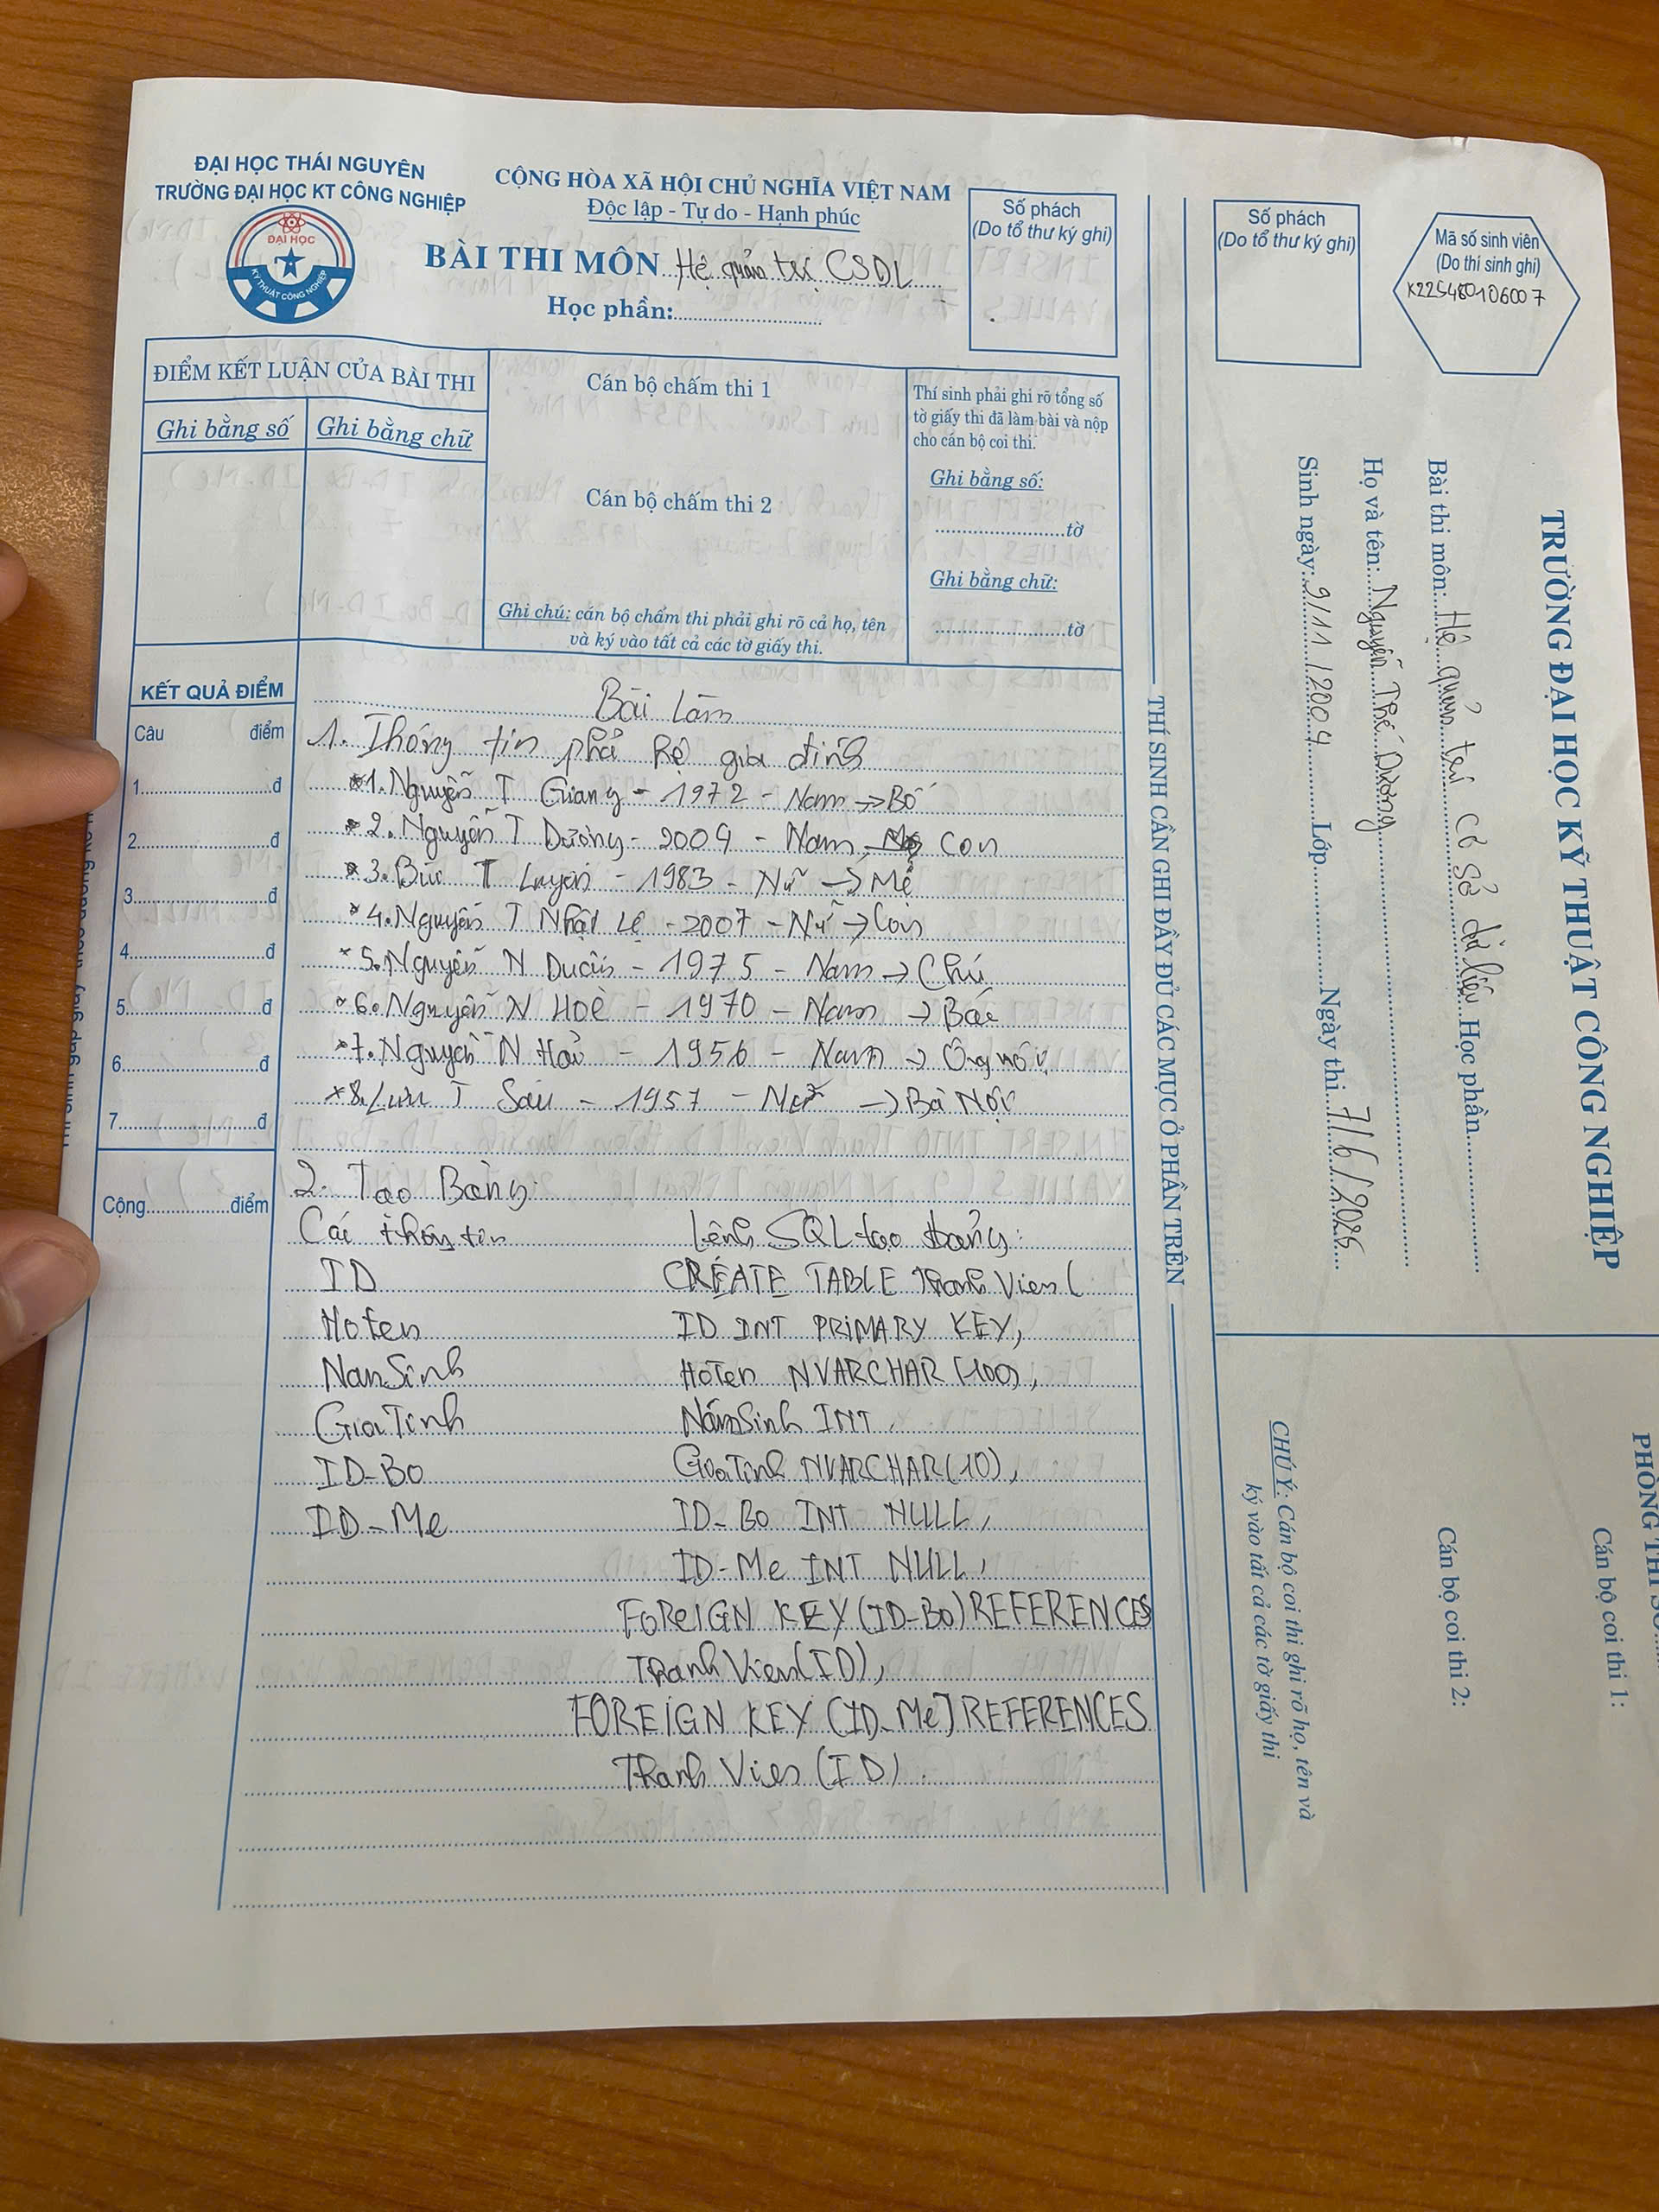 ĐẠI HỌC THÁI NGUYÊN
TRƯỜNG ĐẠI HỌC KT CÔNG NGHIỆP
ĐẠI HỌC
KỸ THUẬT CÔNG NGHIỆP
CỘNG HÒA XÃ HỘI CHỦ NGHĨA VIỆT NAM
Độc lập - Tự do - Hạnh phúc
BÀI THI MÔN Hệ quản trị CSDL
Học phần:
Số phách
(Do tổ thư ký ghi)
ĐIỂM KẾT LUẬN CỦA BÀI THI
Ghi bằng số
Ghi bằng chữ
Cán bộ chấm thi 1
Cán bộ chấm thi 2
Ghi chú: cán bộ chấm thi phải ghi rõ cả họ, tên
và ký vào tất cả các tờ giấy thi.
Thí sinh phải ghi rõ tổng số
tờ giấy thi đã làm bài và nộp
cho cán bộ coi thi.
Ghi bằng số:
tờ
Ghi bằng chữ:
tờ
KẾT QUẢ ĐIỂM
Câu điểm
1 đ
2 đ
3 đ
4 đ
5 đ
6 đ
7 đ
Cộng điểm
Bài Làm
1. Thông tin phả hệ gia đình
*1. Nguyễn T Giang - 1972 - Nam → Bố
*2. Nguyễn T Dương - 2004 - Nam Con
*3. Bùi T Luyên - 1983 - Nữ → Mẹ
*4. Nguyễn T Nhật Lệ - 2007 - Nữ → Con
*5. Nguyễn N Duẩn - 1975 - Nam → Chú
*6. Nguyễn N Hoè - 1970 - Nam → Bác
*7. Nguyễn N - 1956 - Nam → Ông nội
*8. Lưu T Sáu - 1957 - Nữ → Bà Nội
2. Tạo Bảng:
Các thông tin
ID
Hoten
NamSinh
GioiTinh
ID-Bo
ID-Me
Lệnh SQL tạo bảng:
CREATE TABLE ThanhVien(
ID INT PRIMARY KEY,
HoTen NVARCHAR (100),
NămSinh INT,
GioiTinh NVARCHAR(10),
ID-Bo INT NULL,
ID-Me INT NULL,
FOREIGN KEY (ID-Bo) REFERENCES
ThanhVien(ID),
FOREIGN KEY (ID-Me) REFERENCES
ThanhVien (ID)
THÍ SINH CẦN GHI ĐẦY ĐỦ CÁC MỤC Ở PHẦN TRÊN
Số phách
(Do tổ thư ký ghi)
Mã số sinh viên
(Do thí sinh ghi)
K225480106007
TRƯỜNG ĐẠI HỌC KỸ THUẬT CÔNG NGHIỆP
Bài thi môn: Hệ quản trị cơ sở dữ liệu Học phần
Họ và tên: Nguyễn Thế Dương
Sinh ngày: 9/11/2004 Lớp Ngày thi 7/6/2025
CHÚ Ý: Cán bộ coi thi ghi rõ họ, tên và
ký vào tất cả các tờ giấy thi
Cán bộ coi thi 2:
Cán bộ coi thi 1:
PHÒNG THI SỐ